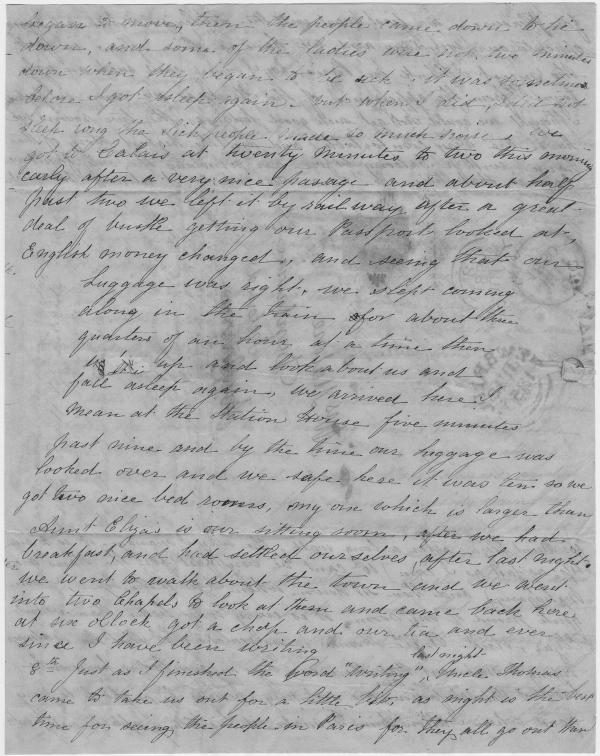 began to move, then the people came down to lie
down, and some of the ladies were not two minutes
down when they began to be sick, it was sometime
before I got asleep again. but when I did, I did not
sleep long the sick people made so much noise, we
got to Calais at twenty minutes to two this morning
early after a very nice passage and about half
past two we left it by railway after a great
deal of bustle getting our Passport looked at,
English money changed, and seeing that our
Luggage was right, we slept coming
along in the train for about three
quarters of an hour, at a time then
up and look about us and
fall asleep again, we arrived here I
mean at the Station House five minutes
past nine and by the time our luggage was
looked over and we safe here it was ten so we
got two nice bed rooms, my one which is larger than
Aunt Elizas is our sitting room, after we had
breakfast, and had settled ourselves, after last night
we went to walk about the town and we went
into two Chapels to look at them and came back here
at six oClock got a chop and our tea and ever
since I have been writing
last night
8th Just as I finished the word "writing", Uncle Thomas
came to take us out for a little, as night is the best
time for seeing the people in Paris for they all go out then